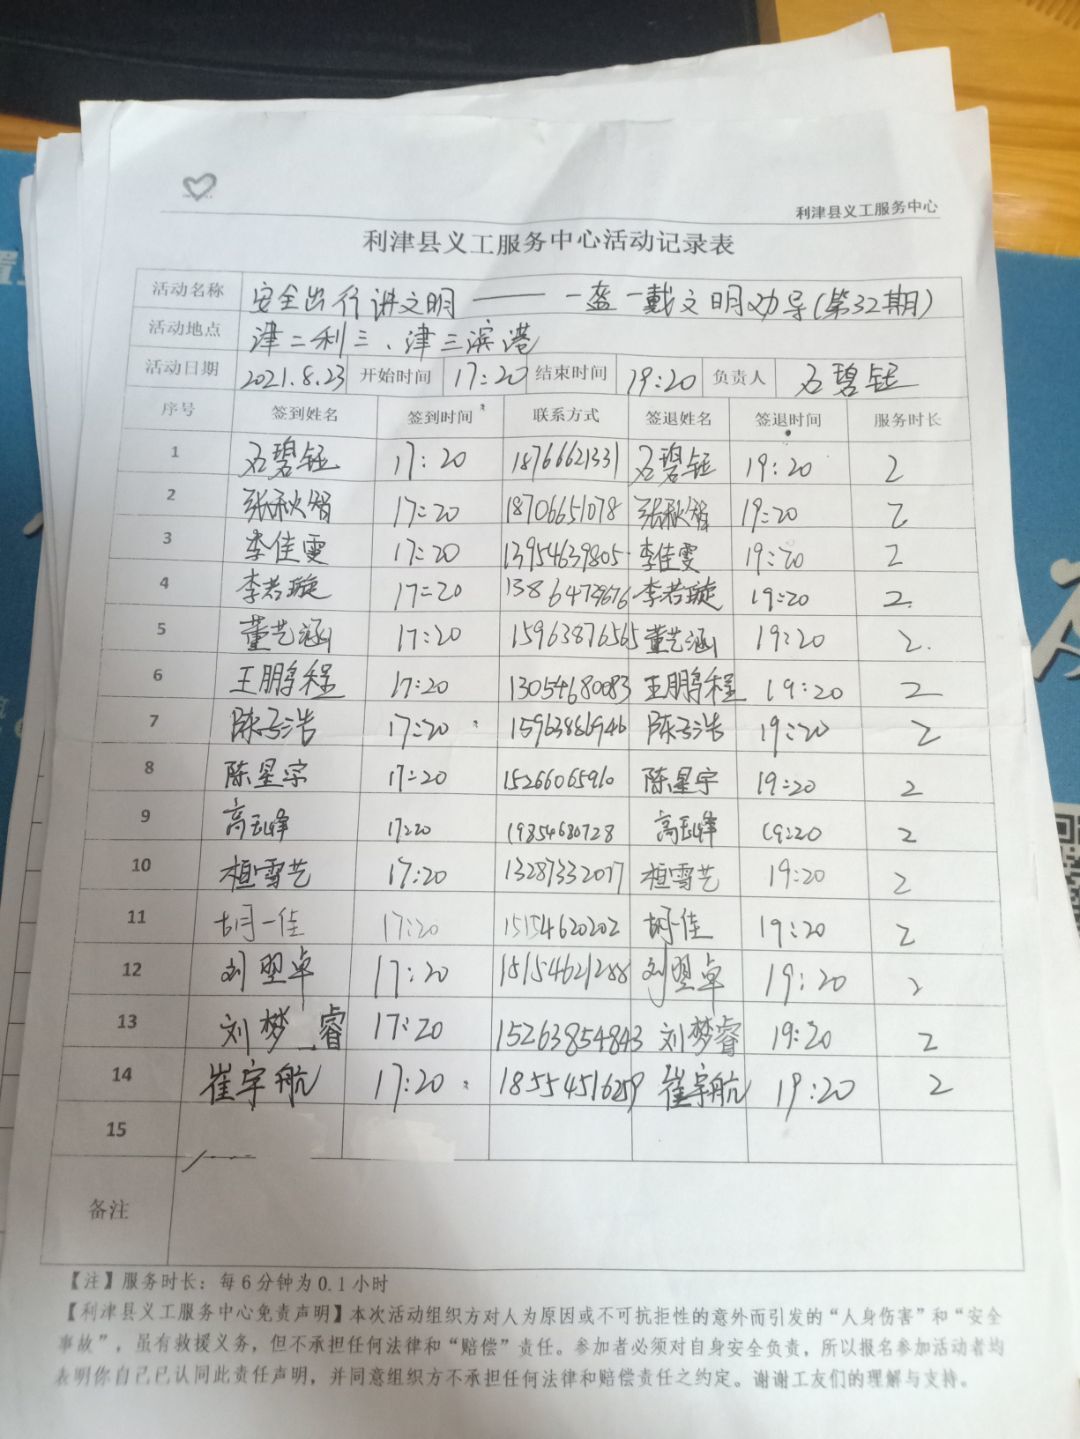 利津县义工服务中心
利津县义工服务中心活动记录表
活动名称 安全出行讲文明——一盔一戴文明劝导(第32期)
活动地点 津二利三、津三滨港
活动日期 2021.8.23 开始时间 17:20 结束时间 19:20 负责人 石碧钰
序号 签到姓名 签到时间 联系方式 签退姓名 签退时间 服务时长
1 石碧钰 17:20 18766621331 石碧钰 19:20 2
2 张秋智 17:20 18706651078 张秋智 19:20 2
3 李佳雯 17:20 13954639805 李佳雯 19:20 2
4 李若璇 17:20 李若璇 19:20 2
5 董艺涵 17:20 15963876565 董艺涵 19:20 2
6 王鹏程 17:20 13054680083 王鹏程 19:20 2
7 陈子浩 17:20 15963886946 陈子浩 19:20 2
8 陈星宇 17:20 15266065910 陈星宇 19:20 2
9 高玉峰 17:20 19854680728 高玉峰 19:20 2
10 桓雪艺 17:20 13287332077 桓雪艺 19:20 2
11 胡一佳 17:20 15154620202 胡一佳 19:20 2
12 刘曌卓 17:20 15154621288 刘曌卓 19:20 2
13 刘梦睿 17:20 15263854843 刘梦睿 19:20 2
14 崔宇航 17:20 18554516259 崔宇航 19:20 2
15
备注
【注】服务时长：每6分钟为0.1小时
【利津县义工服务中心免责声明】本次活动组织方对人为原因或不可抗拒性的意外而引发的“人身伤害”和“安全
事故”，虽有救援义务，但不承担任何法律和“赔偿”责任。参加者必须对自身安全负责，所以报名参加活动者均
表明你自己已认同此责任声明，并同意组织方不承担任何法律和赔偿责任之约定。谢谢工友们的理解与支持。